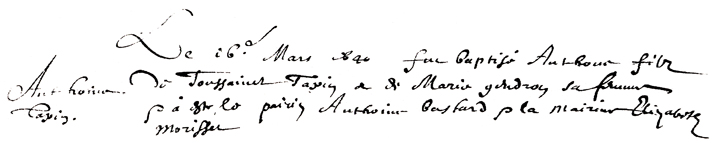 Le 16e Mars 1640 fut baptisé Anthoine filz
Anthoine Tapin.
de Toussainct Tapin & de Marie gendron sa femme
p a esté le parrin Anthoine bastard p la mairine Elizabeth
Morisset